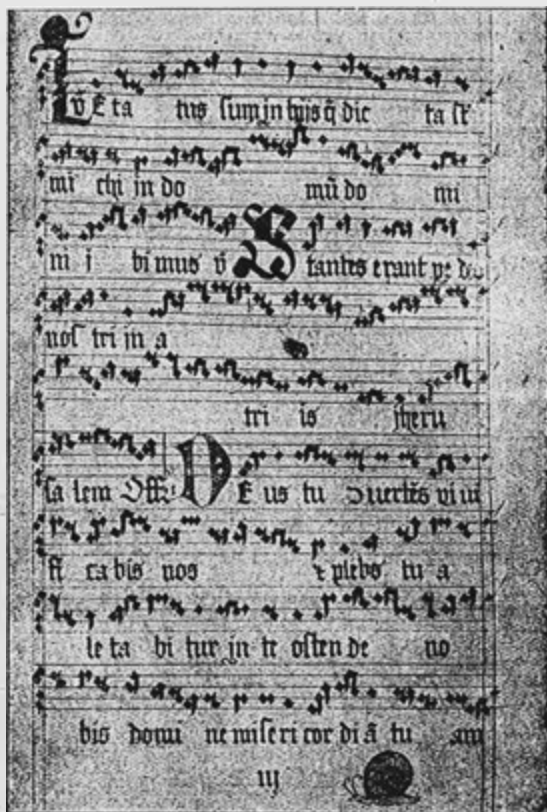 L E ta tus sum jn hijs q̄ dic ta st̄
mi chi jn do mū do mi
ni j bi mus v̄ S tantes erant pe de
nos tri jn a
tri is jheru
sa lem Off. D E us tu ꝯuertēs vi ui
fi ca bis nos ⁊ plebs tu a
le ta bi tur jn te osten de no
bis domi ne mise ri cor di ā tu am
iij